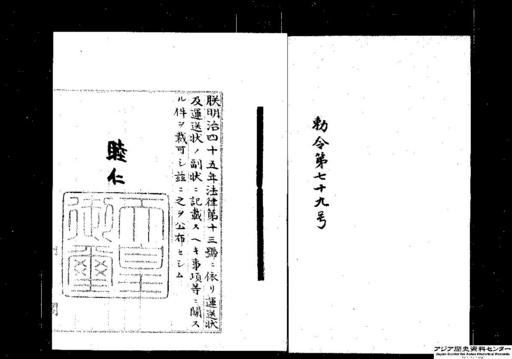 勅令第七十九号
朕明治四十五年法律第十三號ニ依リ運送状
及運送状ノ副状ニ記載スヘキ事項等ニ關ス
ル件ヲ裁可シ茲ニ之ヲ公布セシム
睦仁
天皇御璽
アジア歴史資料センター
Japan Center for Asian Historical Records